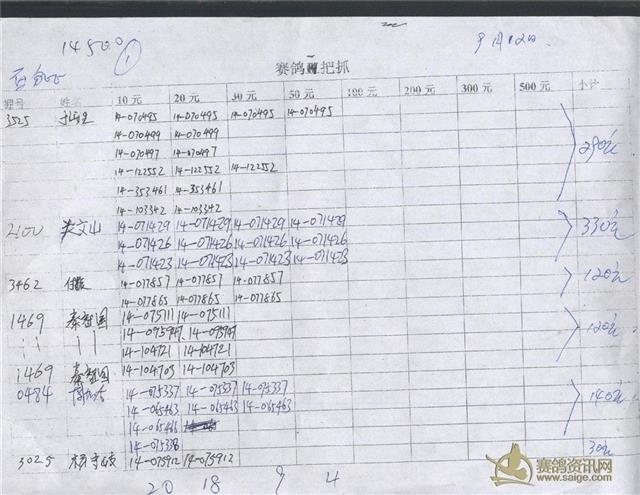 14500 ①
9月12日
赛鸽 把抓
棚号 姓名 10元 20元 30元 50元 100元 200元 300元 500元 小计
3525 14-070495 14-070495 14-070495 14-070495
14-070499 14-070499
14-070497 14-070497
14-122552 14-122552 14-122552 290元
14-353461 14-353461
14-103342 14-103342
2100 文山 14-071429 14-071429 14-071429 14-071429
14-071426 14-071426 14-071426 14-071426 330元
14-071423 14-071423 14-071423 14-071423
3462 14-077857 14-077857 14-077857 120元
14-077865 14-077865 14-077865
1469 秦智国 14-075111 14-075111
14-095947 14-095947 120元
14-104721 14-104721
1469 秦智国 14-104703 14-104703
0484 14-075337 14-075337 14-075337
14-065463 14-065463 14-065463 140元
14-065466
14-075338
3025 杨守 14-075912 14-075912 30元
20 18 9 4
赛鸽资讯网
www.saige.com